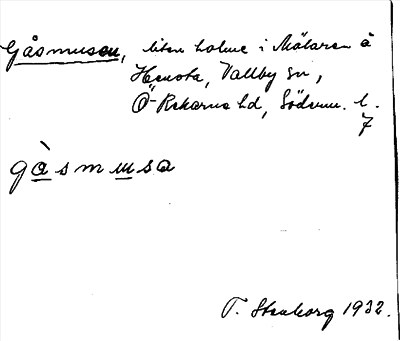 Gåsmusen, liten holme i Mälaren å
Vallby sn,
Ö-Rekarne hd, Söderm. l.
7
gåsmusa
T. Stenborg 1932.